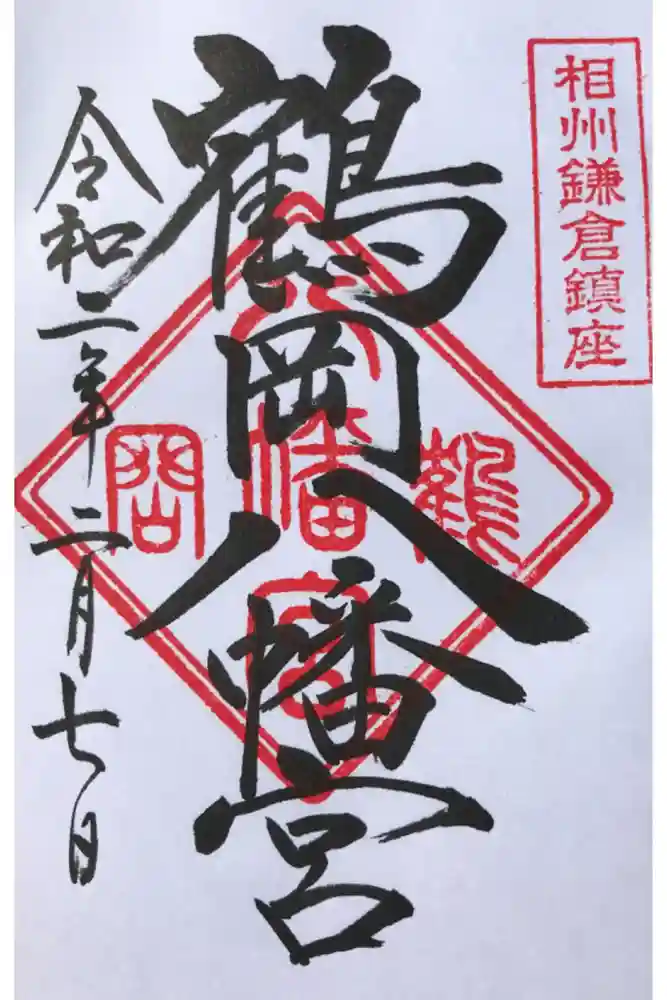 相州鎌倉鎮座
鶴岡八幡宮
令和二年二月七日
鶴
八幡宮
岡